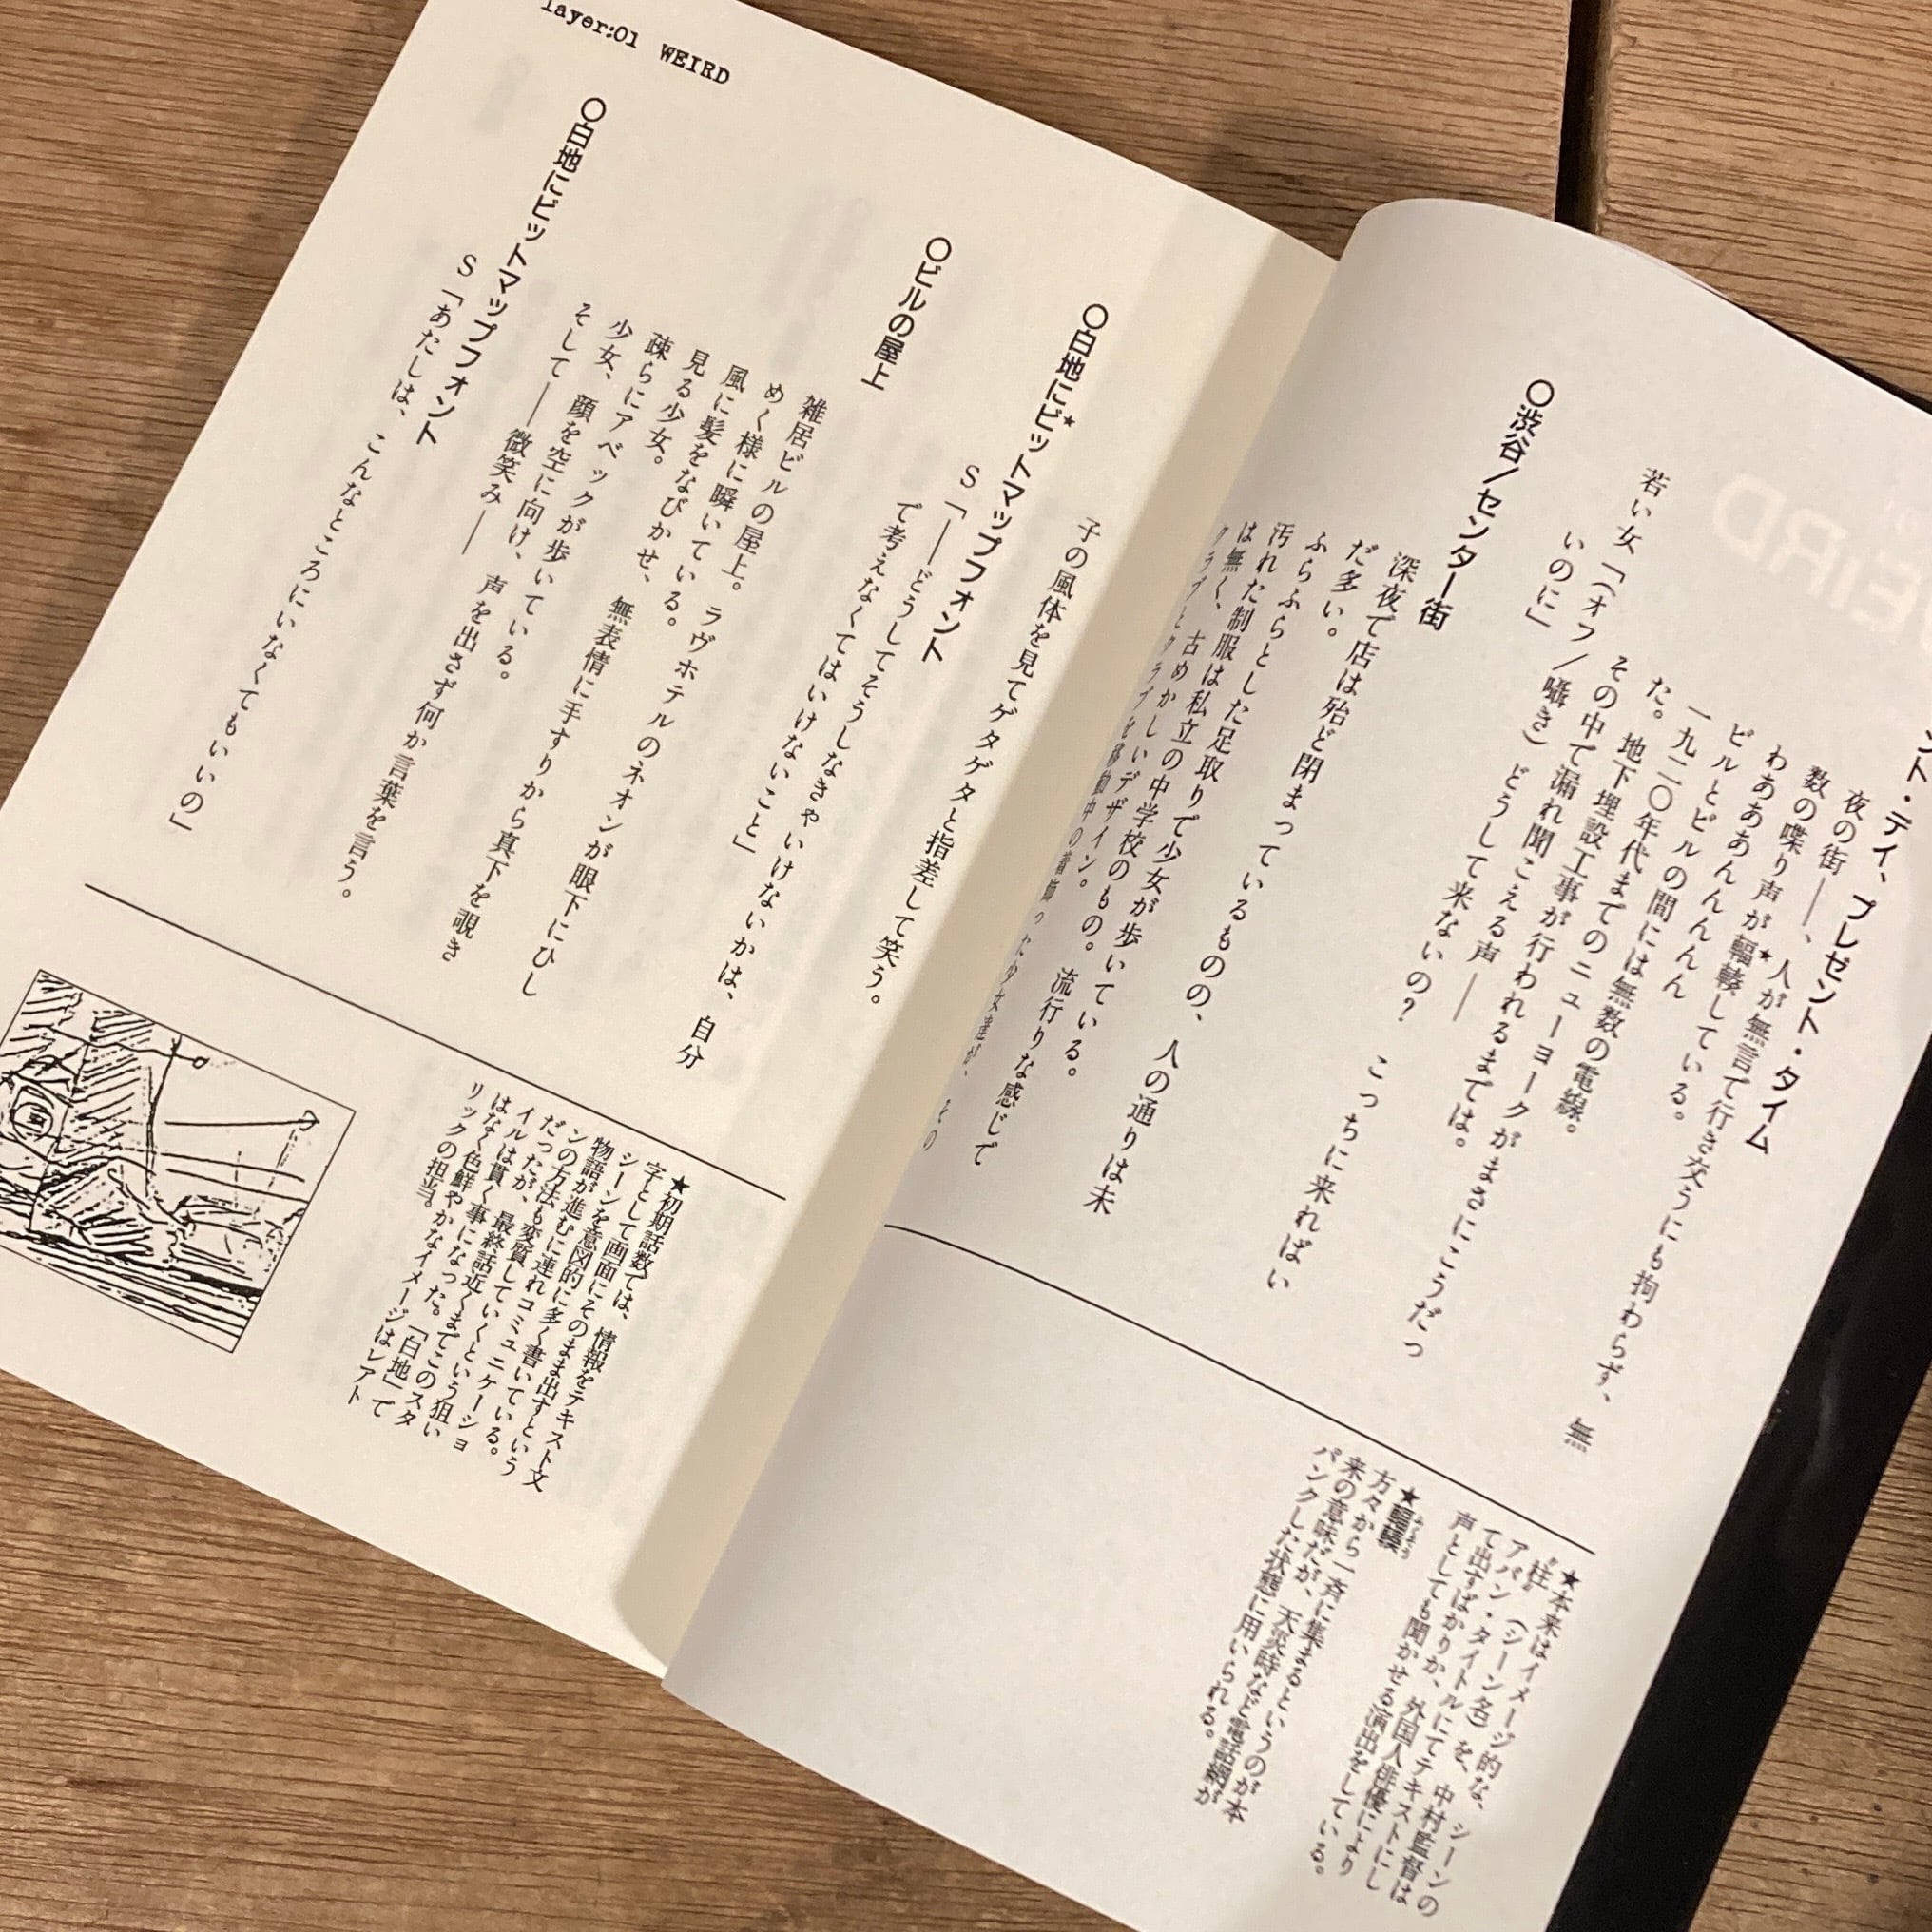 ント・デイ、プレゼント・タイム
夜の街――、人が無言で行き交うにも拘わらず、無
数の喋り声が★輻輳している。
わあああんんんんん
ビルとビルの間には無数の電線。
一九二〇年代までのニューヨークがまさにこうだっ
た。地下埋設工事が行われるまでは。
その中で漏れ聞こえる声――
若い女「(オフ/囁き)どうして来ないの? こっちに来ればい
いのに」
〇渋谷/センター街
深夜で店は殆ど閉まっているものの、人の通りは未
だ多い。
ふらふらとした足取りで少女が歩いている。
汚れた制服は私立の中学校のもの。流行りな感じで
は無く、古めかしいデザイン。
クラブとクラブを移動中の
★本来はイメージ的な、シーンの
"柱"(シーン名)を、中村監督は
アバン・タイトルにてテキストにし
て出すばかりか、外国人俳優により
声としても聞かせる演出をしている。
★輻輳
ふくそう
方々から一斉に集まるというのが本
来の意味だが、天災時など電話網が
パンクした状態に用いられる。
layer:01 WEIRD
子の風体を見てゲタゲタと指差して笑う。
〇白地に★ビットマップフォント
S「――どうしてそうしなきゃいけないかは、自分
で考えなくてはいけないこと」
〇ビルの屋上
雑居ビルの屋上。ラヴホテルのネオンが眼下にひし
めく様に瞬いている。
風に髪をなびかせ、無表情に手すりから真下を覗き
見る少女。
疎らにアベックが歩いている。
少女、顔を空に向け、声を出さず何か言葉を言う。
そして――微笑み――
〇白地にビットマップフォント
S「あたしは、こんなところにいなくてもいいの」
★初期話数では、情報をテキスト文
字として画面にそのまま出すという
シーンを意図的に多く書いている。
物語が進むに連れコミュニケーショ
ンの方法も変質していくという狙い
だったが、最終話近くまでこのスタ
イルは貫く事になった。「白地」で
はなく色鮮やかなイメージはレアト
リックの担当。